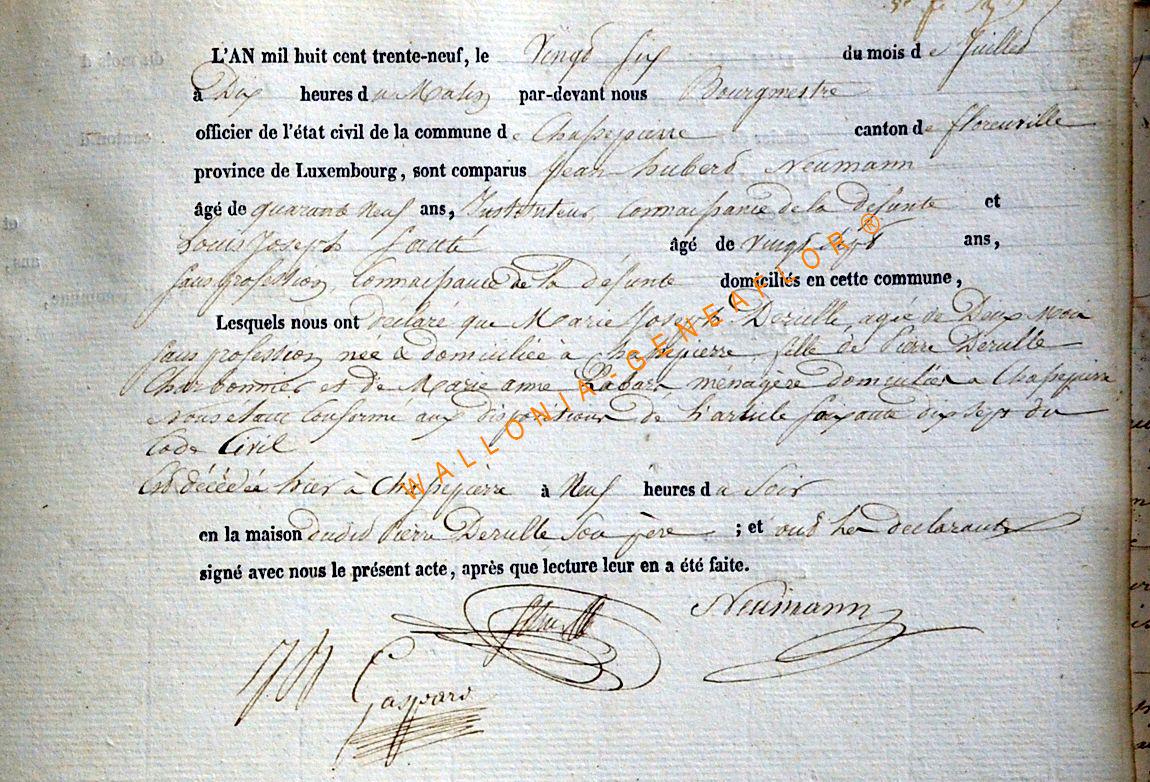 L'AN mil huit cent trente-neuf, le Vingt Six du mois de Juillet
à Dix heures du Matin par-devant nous Bourgmestre
officier de l'état civil de la commune de Chassepierre canton de florenville
province de Luxembourg, sont comparus Jean hubert Neumann
âgé de quarante Neuf ans, Instituteur, Connaissance de la défunte et
Louis Joseph âgé de Vingt Sept ans,
sans profession Connaissance de la défunte domiciliés en cette commune,
Lesquels nous ont déclaré que Marie Joseph Derulle, agée de Deux mois
sans profession née & domiciliée à Chassepierre fille de Pierre Derulle
Charbonnier et de Marie anne ménagère domiciliés a Chassepierre
nous étant Conformé aux dispositions de l'article soixante dix Sept du
Code Civil
Est décédée hier à Chassepierre à Neuf heures du Soir
en la maison dudit Pierre Derulle, Son père ; et ont les déclarants
signé avec nous le présent acte, après que lecture leur en a été faite.
Neumann
Gaspard
WALLONIA-GENEAFLOR ®